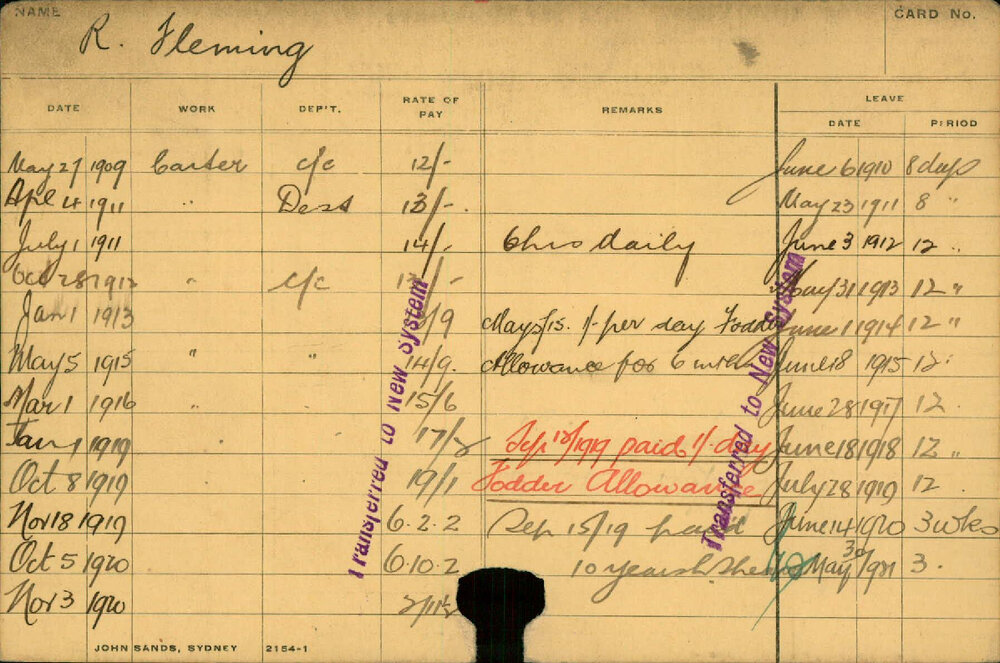 NAME
CARD No.
R. Fleming
DATE WORK DEP'T. RATE OF PAY REMARKS LEAVE
DATE PERIOD
May 27 1909 Carter c/c 12/- June 6 1910 8 days
Apl 4 1911 " 13/- May 23 1911 8 "
July 1 1911 14/- 6 hrs daily June 3 1912 12 "
Oct 28 1912 " c/c May 31 1913 12 "
Jan 1 1913 /9 May 5/15. 1/- per day Fodder June 1 1914 12 "
May 5 1915 " " 14/9. Allowance for 6 mths June 18 1915 12 "
Mar 1 1916 " 15/6 June 28 1917 12.
Jan 1 1919 " " 17/ Sep 1919 paid 1/- day June 18 1918 12 "
Oct 8 1919 19/1 Fodder Allowance July 28 1919 12.
Nov 18 1919 6.2.2 Sep 15/19 paid June 14 1920 3 wks
Oct 5 1920 6.10.2 10 years May 30/1921 3.
Nov 3 1920
Transferred to New System
Transferred to New System
JOHN SANDS, SYDNEY 2154-1